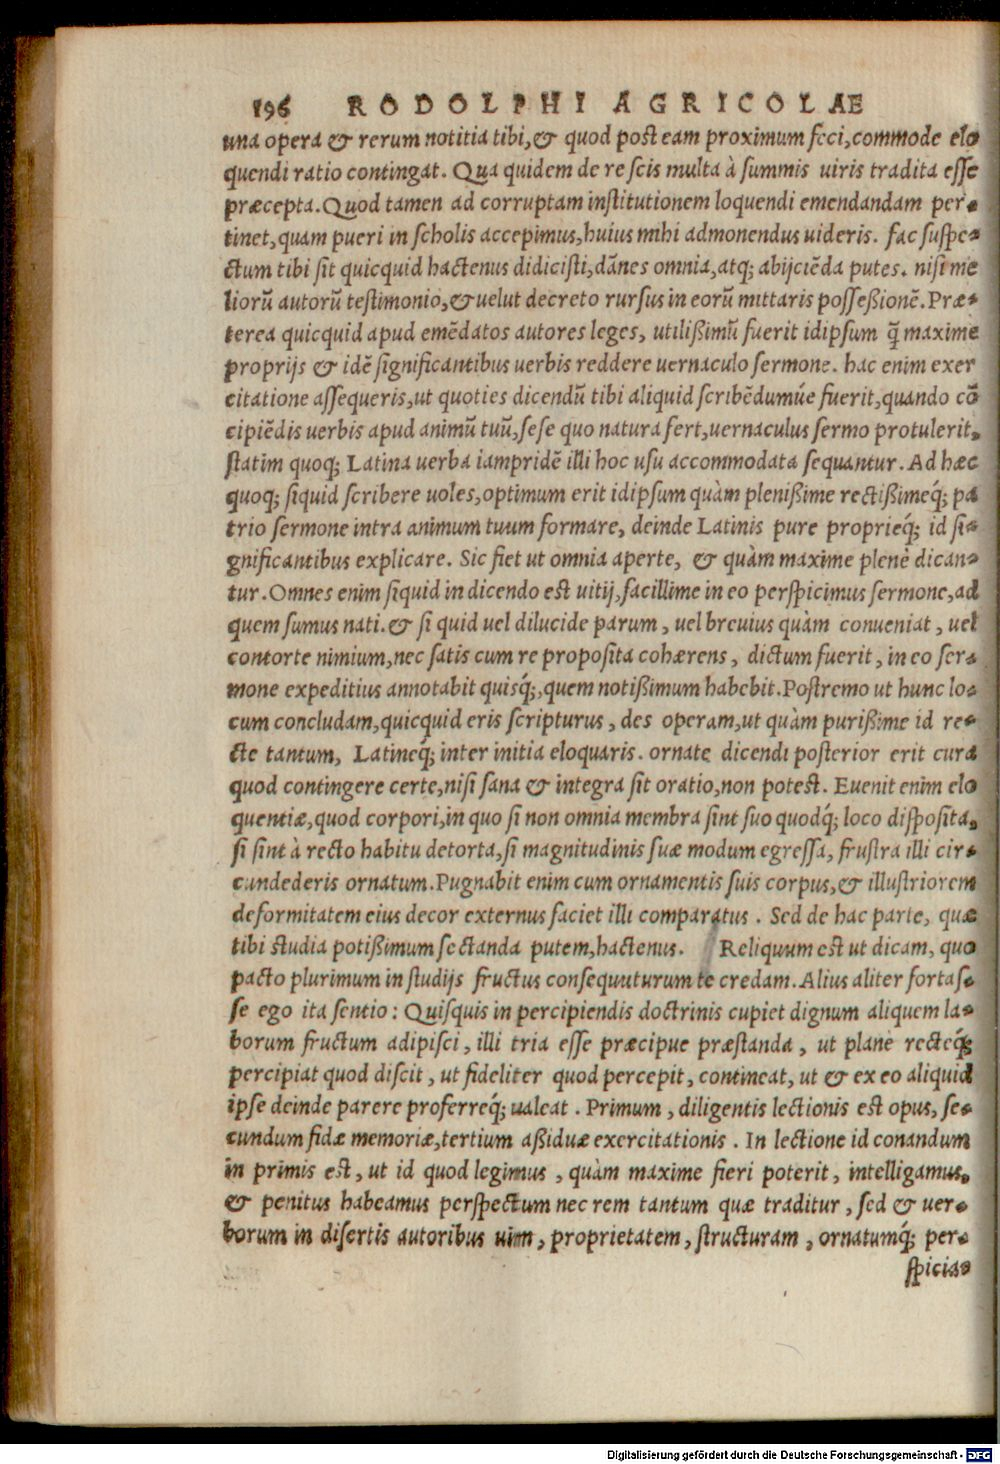 196 RODOLPHI AGRICOLAE
una opera & rerum notitia tibi, & quod post eam proximum feci, commode elo
quendi ratio contingat. Qua quidem de re scis multa à summis uiris tradita esse
præcepta. Quod tamen ad corruptam institutionem loquendi emendandam per-
tinet, quam pueri in scholis accepimus, huius mihi admonendus uideris. fac suspe-
ctum tibi sit quicquid hactenus didicisti, dānes omnia, atq; abijciēda putes. nisi me
liorū autorū testimonio, & uelut decreto rursus in eorū mittaris posseßionē. Præ-
terea quicquid apud emēdatos autores leges, utilißimū fuerit idipsum q̄ maxime
proprijs & idē significantibus uerbis reddere uernaculo sermone. hac enim exer
citatione assequeris, ut quoties dicendū tibi aliquid scribēdumúe fuerit, quando cō
cipiēdis uerbis apud animū tuū, sese quo natura fert, uernaculus sermo protulerit,
statim quoq; Latina uerba iampridē illi hoc usu accommodata sequantur. Ad hæc
quoq; siquid scribere uoles, optimum erit idipsum quàm plenißime rectißimeq́; pa
trio sermone intra animum tuum formare, deinde Latinis pure proprieq́; id si-
gnificantibus explicare. Sic fiet ut omnia aperte, & quàm maxime plenè dican-
tur. Omnes enim siquid in dicendo est uitij, facillime in eo perspicimus sermone, ad
quem sumus nati. & si quid uel dilucide parum, uel breuius quàm conueniat, uel
contorte nimium, nec satis cum re proposita cohærens, dictum fuerit, in eo ser-
mone expeditius annotabit quisq́;, quem notißimum habebit. Postremo ut hunc lo-
cum concludam, quicquid eris scripturus, des operam, ut quàm purißime id re-
cte tantum, Latineq́; inter initia eloquaris. ornate dicendi posterior erit cura
quod contingere certe, nisi sana & integra sit oratio, non potest. Euenit enim elo
quentiæ, quod corpori, in quo si non omnia membra sint suo quodq́; loco disposita,
si sint à recto habitu detorta, si magnitudinis suæ modum egressa, frustra illi cir-
cundederis ornatum. Pugnabit enim cum ornamentis suis corpus, & illustriorem
deformitatem eius decor externus faciet illi comparatus. Sed de hac parte, quæ
tibi studia potißimum sectanda putem, hactenus. Reliquum est ut dicam, quo
pacto plurimum in studijs fructus consequuturum te credam. Alius aliter fortas-
se ego ita sentio: Quisquis in percipiendis doctrinis cupiet dignum aliquem la-
borum fructum adipisci, illi tria esse præcipue præstanda, ut plane recteq́;
percipiat quod discit, ut fideliter quod percepit, contineat, ut & ex eo aliquid
ipse deinde parere proferreq́; ualeat. Primum, diligentis lectionis est opus, se-
cundum fidæ memoriæ, tertium aßiduæ exercitationis. In lectione id conandum
in primis est, ut id quod legimus, quàm maxime fieri poterit, intelligamus,
& penitus habeamus perspectum nec rem tantum quæ traditur, sed & uer-
borum in disertis autoribus uim, proprietatem, structuram, ornatumq́; per-
spicia-
Digitalisierung gefördert durch die Deutsche Forschungsgemeinschaft - DFG